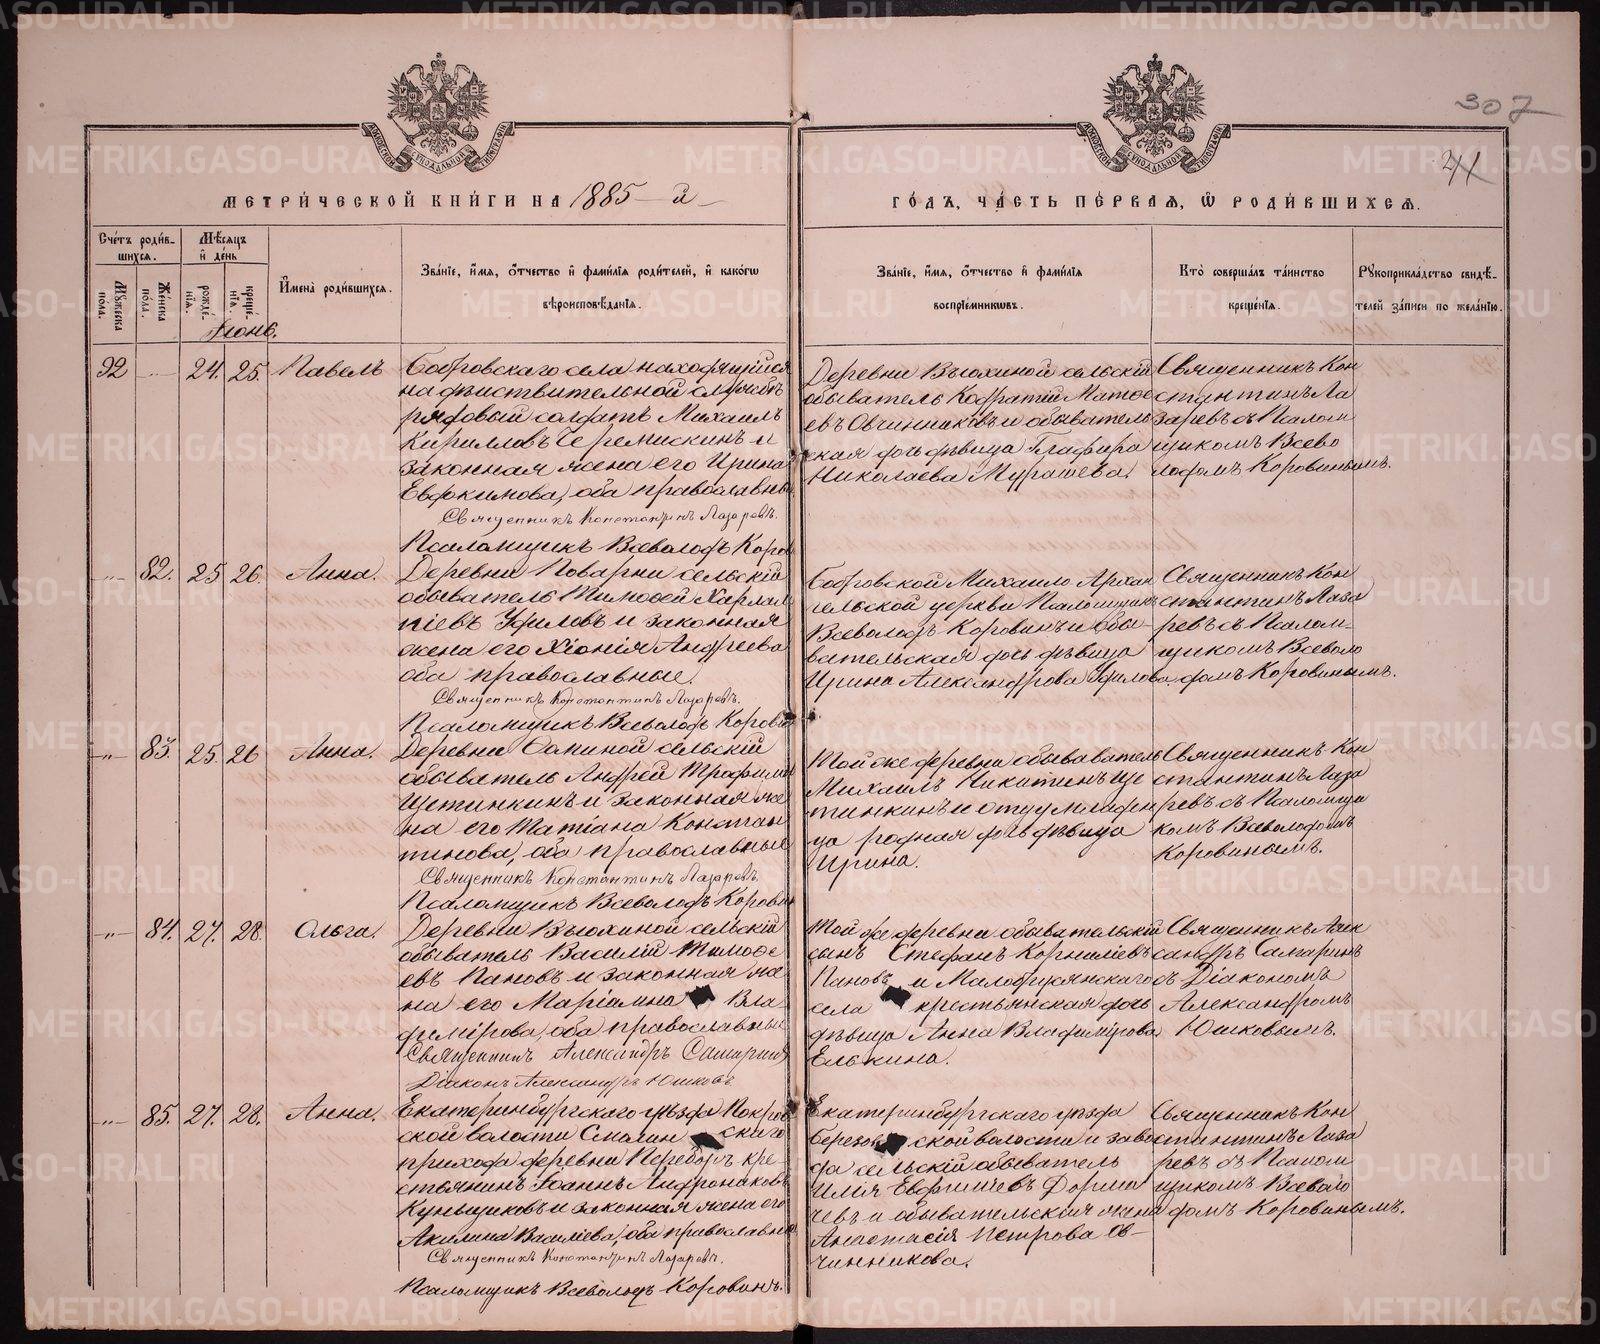 307
41
МОСКОВСКОЙ СѴНОДАЛЬНОЙ ТИПОГРАФІИ
МОСКОВСКОЙ СѴНОДАЛЬНОЙ ТИПОГРАФІИ
МЕТРИ́ЧЕСКОЙ КНИ́ГИ НА 1885-й
ГО́ДЪ, ЧА́СТЬ ПЕ́РВАѦ, Ѡ҆ РОДИ́ВШИХСѦ.
Сче́тъ роди́в-
шихсѧ.
Мꙋжеска пола.
Же́нска по́ла.
Мѣ́сѧцъ
и҆ де́нь
рожде́-
нїѧ.
креще́-
нїѧ.
Іюнь.
И҆мена̀ роди́вшихсѧ.
Зва́нїе, и҆́мѧ, ѻ҆́тчество и҆ фами́лїѧ роди́телей, и҆ како́гѡ
вѣроисповѣ́данїѧ.
Зва́нїе, и҆́мѧ, ѻ҆́тчество и҆ фами́лїѧ
воспрїе́мниковъ.
Кто̀ соверша́лъ та́инство
креще́нїѧ.
Рꙋкоприкла́дство свидѣ́-
телей за́писи по жела́нїю.
92
24. 25. Павелъ
Бобровскаго села находящійся
на дѣйствительной службѣ
рядовый солдатъ Михаилъ
Кирилловъ Черемискинъ и
законная жена его Ирина
Евдокимова, оба православные
Священникъ Константинъ Лазаревъ.
Псаломщикъ Всеволодъ Коров
Деревни Вьюхиной сельскій
обыватель Кодратій Матѳе
евъ Овчинниковъ и обыватель
ская дочь дѣвица Глафира
Николаева Мурашева.
Священникъ Кон
стантинъ Ла
заревъ съ Псалом
щикомъ Всево
лодомъ Коровинымъ.
-"- 82. 25 26. Анна.
Деревни Поварни сельскій
обыватель Тимоѳей Харлам
піевъ Уфиловъ и законная
жена его Хіонія Андреева
оба православные.
Священникъ Константинъ Лазаревъ.
Псаломщикъ Всеволодъ Корови
Бобровской Михаило Архан
гельской церкви Псаломщикъ
Всеволодъ Коровинъ и обы-
вательская дочь дѣвица
Ирина Александрова Уфилова.
Священникъ Кон
стантинъ Лаза
ревъ съ Псалом-
щикомъ Всеволо
домъ Коровинымъ.
-"- 83. 25. 26 Анна.
обыватель Андрей Трофимов
Щетинкинъ и законная же
на его Татіана Констан
тинова, оба православные
Священникъ Константинъ Лазаревъ.
Псаломщикъ Всеволодъ Корови
Той же деревни обыватель
Михаилъ Никитинъ Ще
тинкинъ и отцу младен
ца родная дочь дѣвица
Ирина.
Священникъ Кон
стантинъ Лаза
ревъ съ Псаломщи
комъ Всеволодомъ
Коровинымъ.
-"- 84. 27. 28. Ольга.
Деревни Вьюхиной сельскій
обыватель Василій Тимоѳе
евъ Пановъ и законная же
на его Маріамна Вла
димірова, оба православные
Священникъ Александръ Самаринъ
Діаконъ Александръ Юшковъ
Той же деревни обывательскій
сынъ Стефанъ Корниліевъ
Пановъ и Малобрусянскаго
села крестьянская дочь
дѣвица Анна Владимірова
Елькина.
Священникъ Алек
сандръ Самаринъ
съ Діакономъ
Александромъ
Юшковымъ.
-"- 85. 27. 28. Анна.
Екатеринбургскаго уѣзда Покров
ской волости Смолин скаго
прихода деревни Переборъ кре-
стьянинъ Іоаннъ Андрониковъ
Кунщиковъ и законная жена его
Акилина Василіева, оба православные
Священникъ Константинъ Лазаревъ.
Псаломщикъ Всеволодъ Коровинъ.
Екатеринбургскаго уѣзда
Березов ской волости и заво
да сельскій обыватель
чевъ и обывательская жена
Анастасія Петрова Ов-
чинникова.
Священникъ Кон
стантинъ Лаза
ревъ съ Псалом
щикомъ Всеволо
домъ Коровинымъ.
METRIKI.GASO-URAL.RU